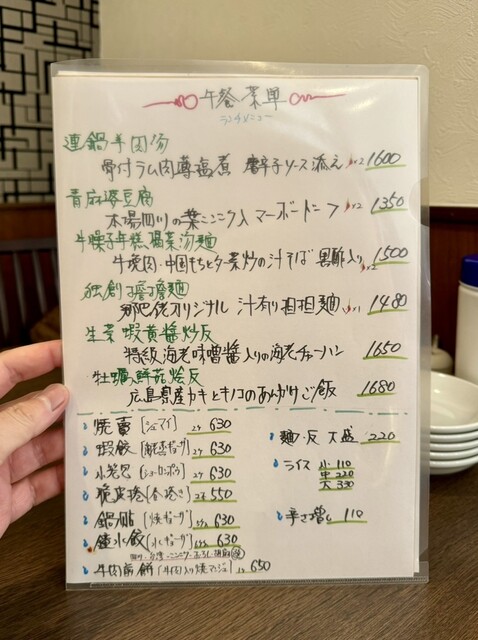 午餐菜單
ランチメニュー
連鍋羊肉湯
骨付ラム肉薄塩煮 唐辛子ソース添え ×2 1600
青麻婆豆腐
本場四川の葉ニンニク入マーボードーフ ×2 1350
牛燥子年糕 湯麺
牛挽肉・中国もちと菜炒の汁そば 黒酢入り ×2 1500
独創 麺
オリジナル 汁有り担担麺 ×1 1480
生菜蝦黄醤炒反
特級海老味噌醤入りの海老チャーハン 1650
牡蠣鮮菇烩反
広島県産カキとキノコのあんかけご飯 1680
焼賣 [シュマイ] 2ケ 630
蝦餃 2ケ 630
小笼包 [ショーロンポウ] 2ケ 630
脆皮捲 [春巻] 2本 550
鍋貼 [焼ギョーザ] 630
鐘水餃 [水ギョーザ] 630
牛肉煎餅 650
麺・反 大盛 220
ライス 小 110
中 220
大 330
辛さ増し 110